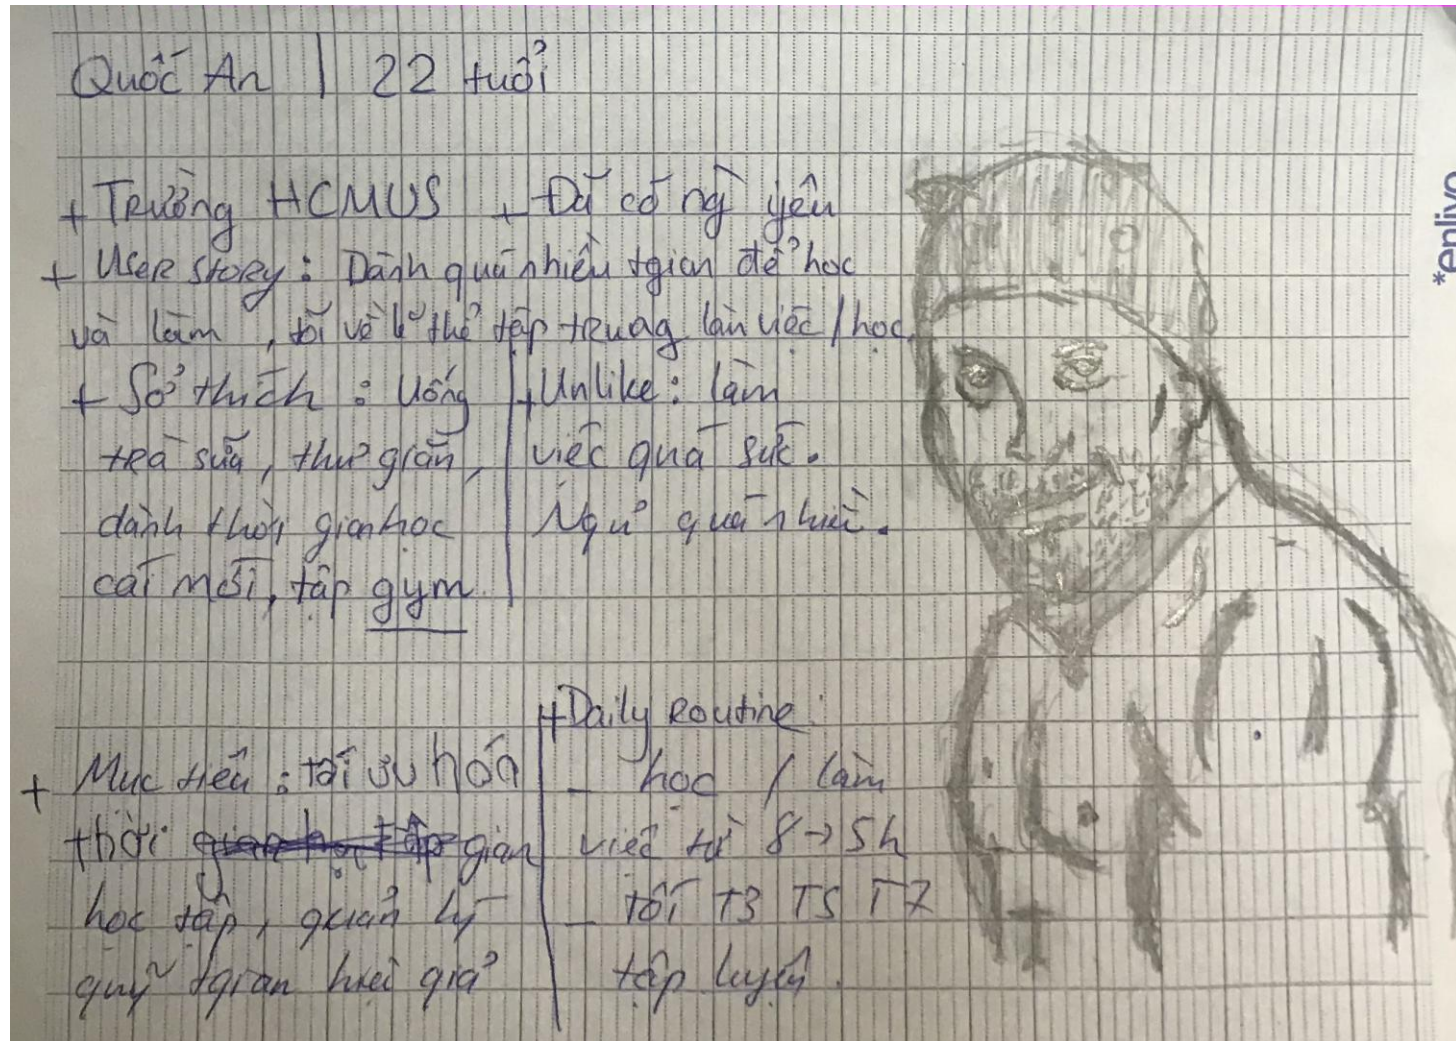 Quốc An | 22 tuổi
+ Trường HCMUS + Đã có ng yêu
+ User story: Dành quá nhiều tgian để học
và làm, tối về k thể tập trung làn việc / học.
+ Sở thích: Uống
trà sữa, thư giãn,
dành thời gian học
cái mới, tập gym.
+ Unlike: làm
việc quá sức.
Ngủ quá nhiều.
+ Mục tiêu: tối ưu hóa
thời gian
học tập, quản lý
quỹ tgian hiệu giả
+ Daily Routine:
- học / làm
việc từ 8 → 5h
- tối T3 T5 T7
tập luyện.
*enlivo